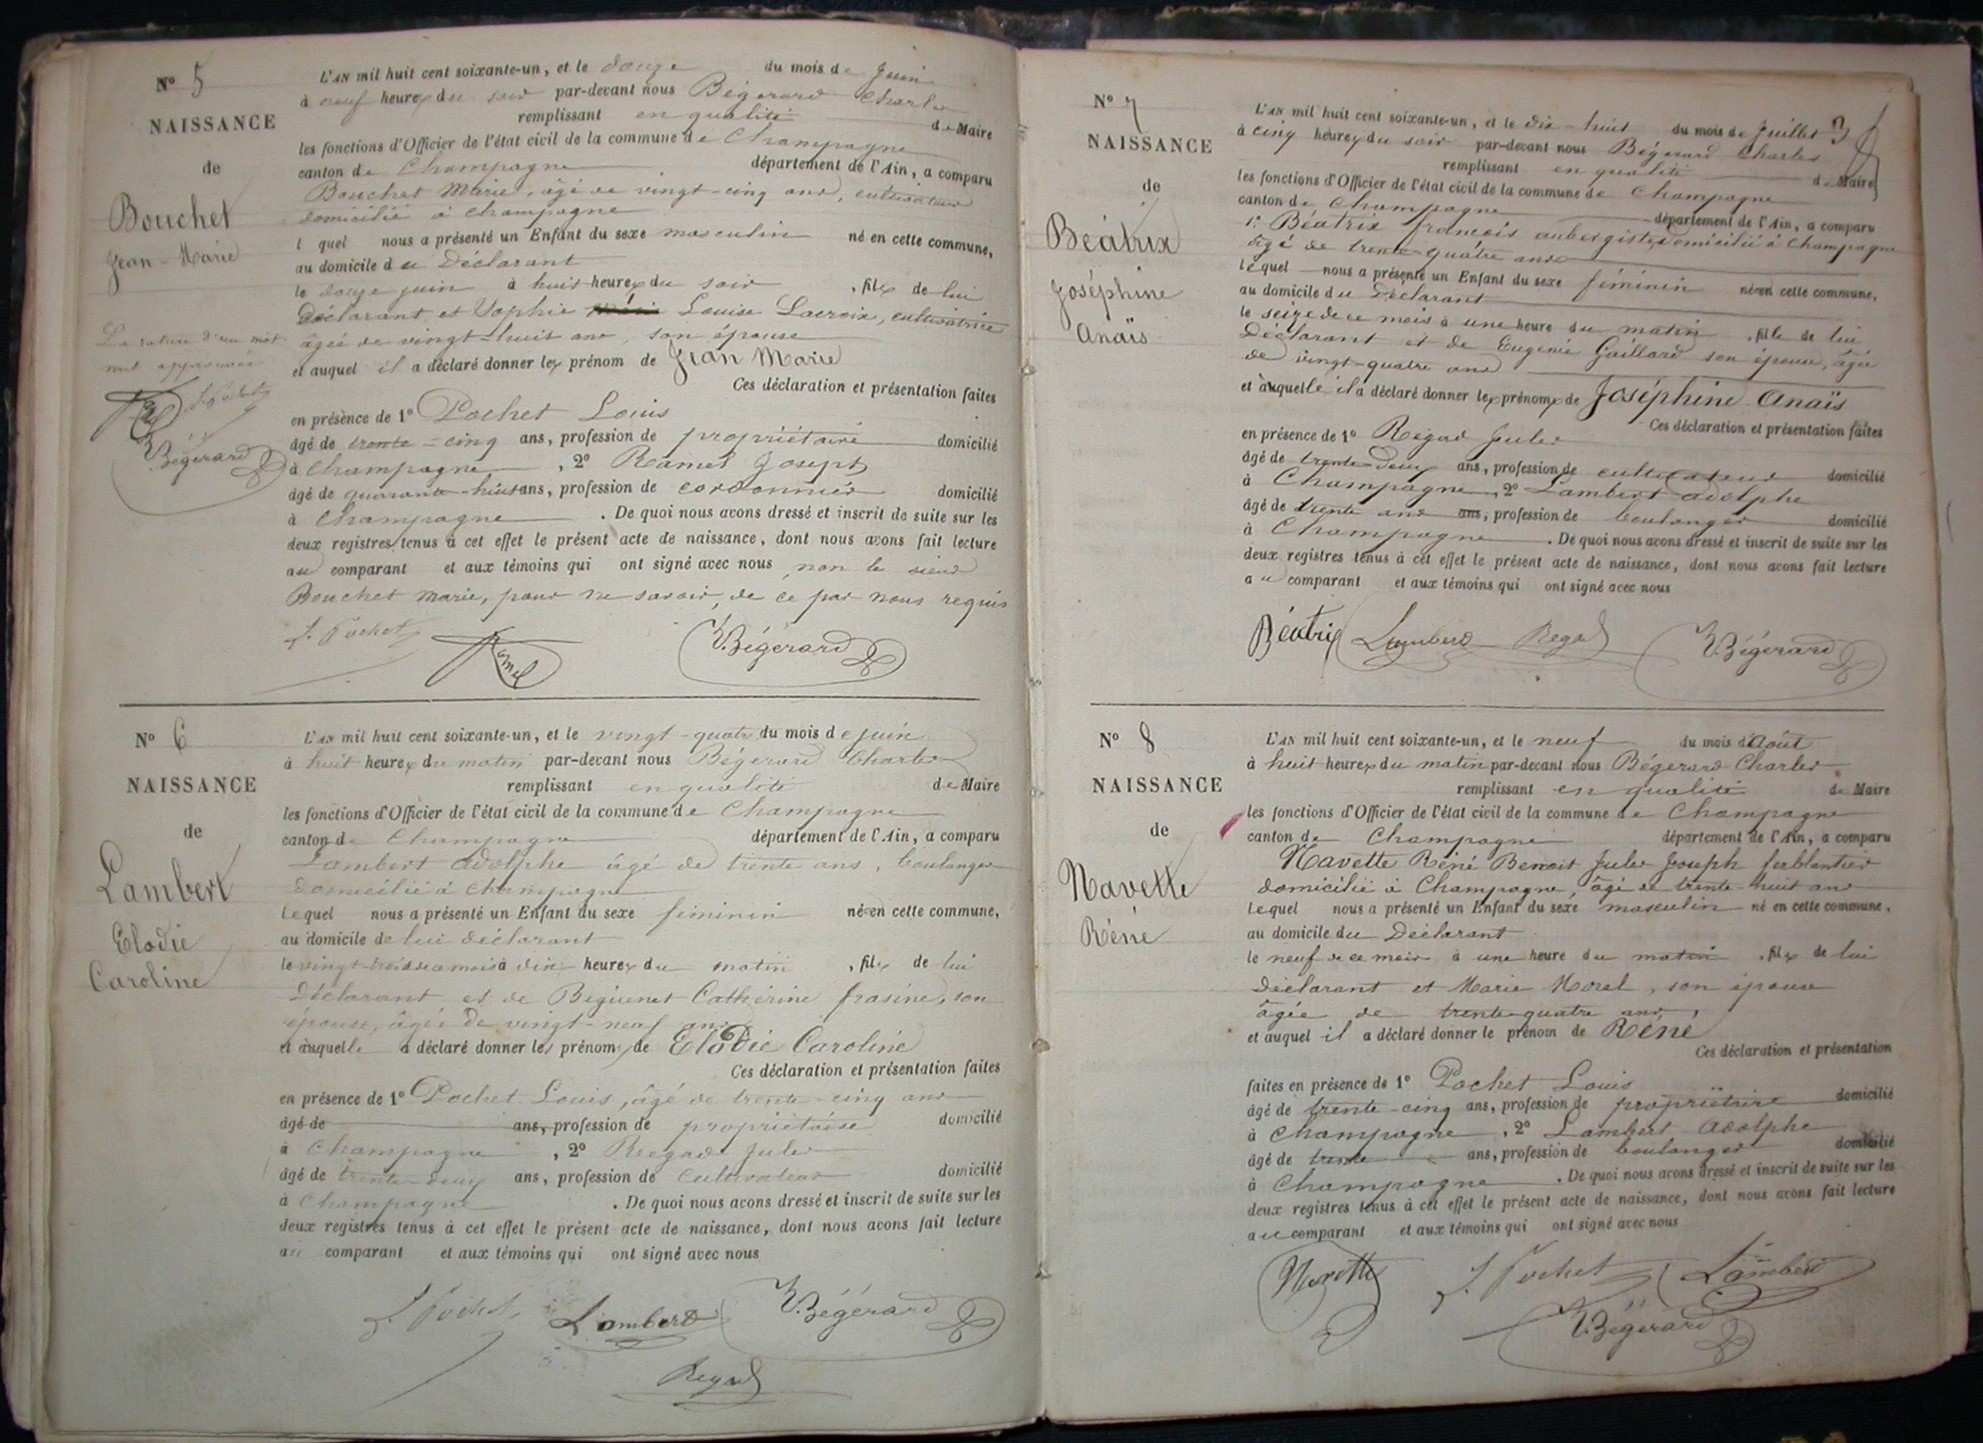 N° 5
NAISSANCE
de
Bouchet
Jean-Marie
La rature d'un mot
nul approuvée
L. Pochet
Bégerard
L'AN mil huit cent soixante-un, et le douze du mois de Juin
à neuf heures du soir par-devant nous Bégerard Charles
remplissant en qualité de Maire
les fonctions d'Officier de l'état civil de la commune de Champagne
canton de Champagne département de l'Ain, a comparu
Bouchet Marie, âgé de vingt-cinq ans, cultivateur
domicilié à Champagne
lequel nous a présenté un Enfant du sexe masculin né en cette commune,
au domicile du Déclarant
le douze juin à huit heures du soir, fils de lui
Déclarant et Sophie Louise Lacroix, cultivatrice
âgée de vingt-huit ans, son épouse
et auquel il a déclaré donner les prénom de Jean Marie
Ces déclaration et présentation faites
en présence de 1° Pochet Louis
âgé de trente-cinq ans, profession de propriétaire domicilié
à Champagne, 2° Ramel Joseph
âgé de quarante-huit ans, profession de cordonnier domicilié
à Champagne. De quoi nous avons dressé et inscrit de suite sur les
deux registres tenus à cet effet le présent acte de naissance, dont nous avons fait lecture
au comparant et aux témoins qui ont signé avec nous, non le sieur
Bouchet Marie, pour ne savoir, de ce par nous requis
L. Pochet Ramel Bégerard
N° 6
NAISSANCE
de
Lambert
Elodie
Caroline
L'AN mil huit cent soixante-un, et le vingt-quatre du mois de juin
à huit heures du matin par-devant nous Bégerard Charles
remplissant en qualité de Maire
les fonctions d'Officier de l'état civil de la commune de Champagne
canton de Champagne département de l'Ain, a comparu
Lambert Adolphe âgé de trente ans, boulanger
Domicilié à Champagne
Lequel nous a présenté un Enfant du sexe féminin né en cette commune,
au domicile de lui déclarant
le vingt-trois de ce mois à dix heures du matin, fille de lui
Déclarant et de Béguenet Cathérine frasine, son
épouse, âgée de vingt-neuf ans
et àuquelle a déclaré donner les prénoms de Elodie Caroline
Ces déclaration et présentation faites
en présence de 1° Pochet Louis, âgé de trente-cinq ans
âgé de ans, profession de propriétaire domicilié
à Champagne, 2° Regad Jules
âgé de trente-deux ans, profession de Cultivateur domicilié
à Champagne. De quoi nous avons dressé et inscrit de suite sur les
deux registres tenus à cet effet le présent acte de naissance, dont nous avons fait lecture
au comparant et aux témoins qui ont signé avec nous
L. Pochet Lambert Bégerard
Regad
N° 7
NAISSANCE
de
Béatrix
Joséphine
Anaïs
L'AN mil huit cent soixante-un, et le dix-huit du mois de Juillet 3
à cinq heures du soir par-devant nous Bégerard Charles
remplissant en qualité de Maire
les fonctions d'Officier de l'état civil de la commune de Champagne
canton de Champagne département de l'Ain, a comparu
1° Béatrix françois aubergiste domicilié à Champagne
âgé de trente-quatre ans
lequel nous a présenté un Enfant du sexe féminin né en cette commune,
au domicile du Déclarant
le seize de ce mois à une heure du matin, fille de lui
Déclarant et de Eugénie Gaillard son épouse, âgée
de vingt-quatre ans
et àuquelle il a déclaré donner les prénoms de Joséphine Anaïs
Ces déclaration et présentation faites
en présence de 1° Régad Jules
âgé de trente-deux ans, profession de cultivateur domicilié
à Champagne, 2° Lambert Adolphe
âgé de trente ans ans, profession de boulanger domicilié
à Champagne. De quoi nous avons dressé et inscrit de suite sur les
deux registres tenus à cet effet le présent acte de naissance, dont nous avons fait lecture
au comparant et aux témoins qui ont signé avec nous
Béatrix Lambert Regad Bégerard
N° 8
NAISSANCE
de
Navette
Réné
L'AN mil huit cent soixante-un, et le neuf du mois d'Août
à huit heures du matin par-devant nous Bégerard Charles
remplissant en qualité de Maire
les fonctions d'Officier de l'état civil de la commune de Champagne
canton de Champagne département de l'Ain, a comparu
Navette Réné Benoit Jules Joseph ferblantier
domicilié à Champagne, âgé de trente-huit ans
Lequel nous a présenté un Enfant du sexe masculin né en cette commune,
au domicile du Déclarant
le neuf de ce mois à une heure du matin, fils de lui
Déclarant et Marie Morel, son épouse
âgée de trente-quatre ans,
et auquel il a déclaré donner le prénom de Réné
Ces déclaration et présentation
faites en présence de 1° Pochet Louis
âgé de trente-cinq ans, profession de propriétaire domicilié
à Champagne, 2° Lambert Adolphe
âgé de trente ans, profession de boulanger domicilié
à Champagne. De quoi nous avons dressé et inscrit de suite sur les
deux registres tenus à cet effet le présent acte de naissance, dont nous avons fait lecture
au comparant et aux témoins qui ont signé avec nous
Navette L. Pochet Lambert
Bégerard